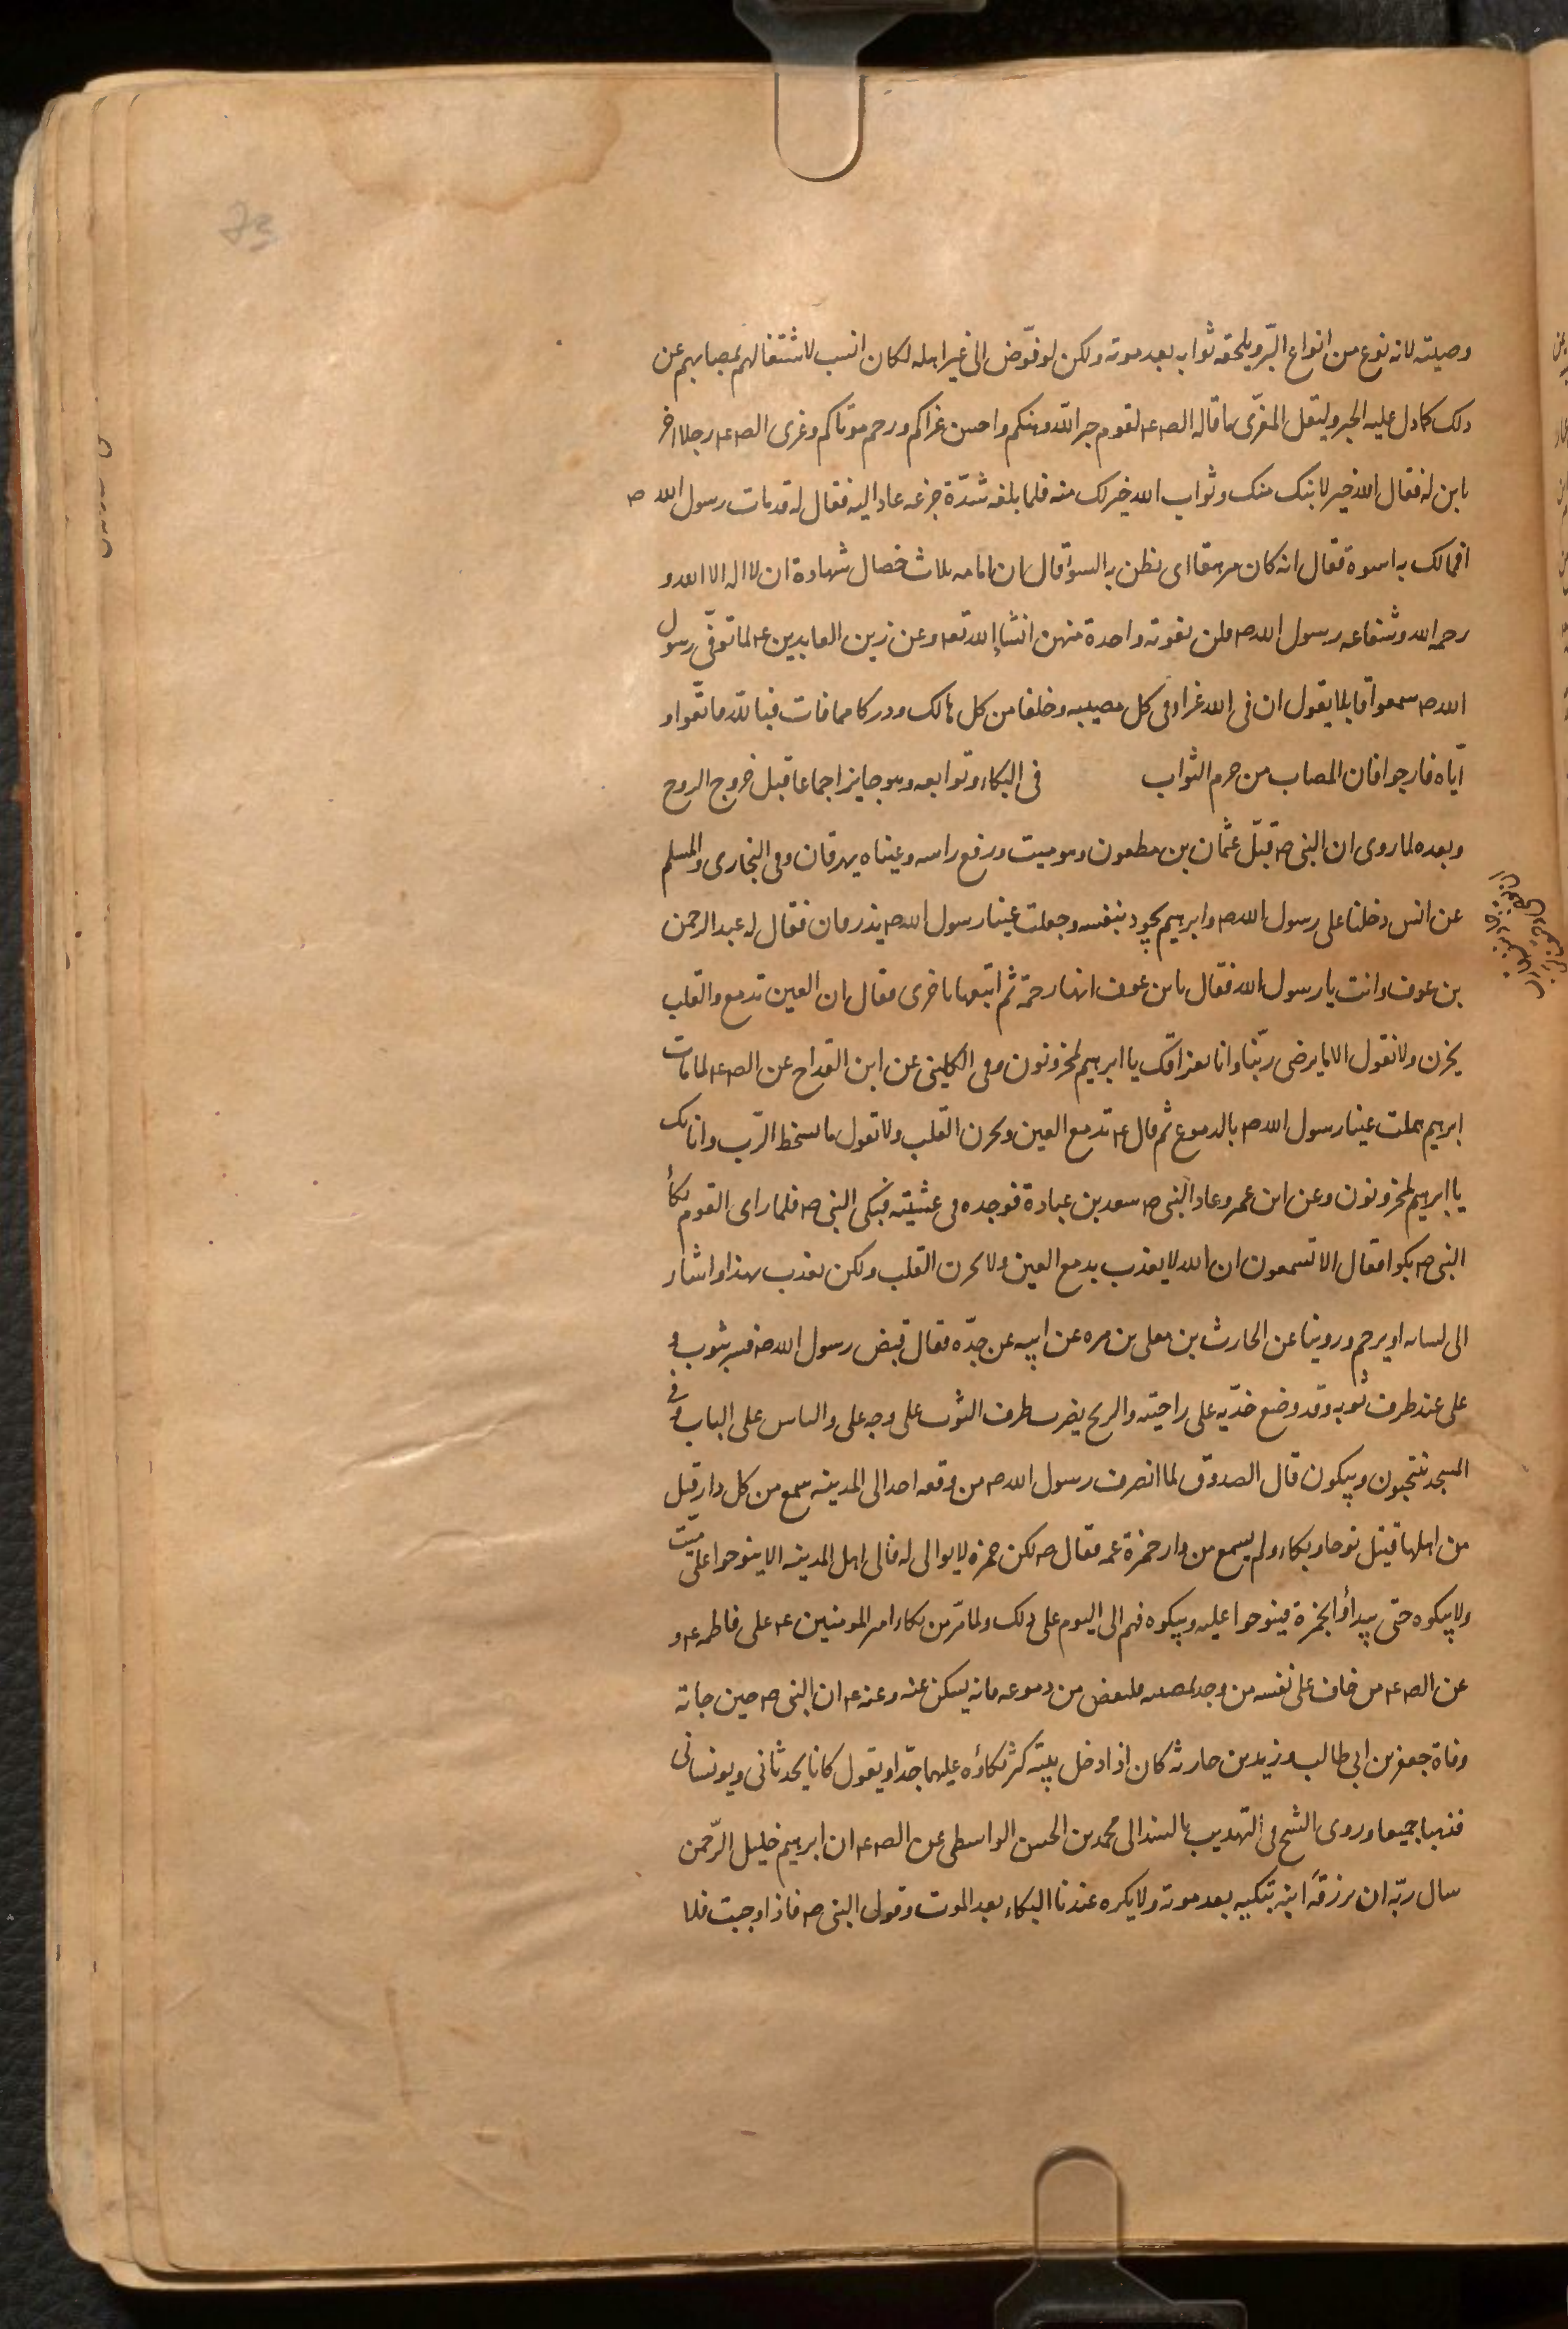 وصيته لانه نوع من انواع البرّ ويلحقه ثوابه بعد موته ولكن لو فوّض الى غير اهله لكان انسب لاشتغالهم بمصابهم عن
ذلك كما دل عليه الخبر وليقل المعزّى ما قاله الصـ ع لقوم جبر الله وهنكم واحسن عزاكم ورحم موتاكم وعزى الصـ ع رجلا اخر
بابن له فقال الله خير لابنك منك وثواب الله خير لك منه فلما بلغه شدّة جزعه عاد اليه فقال له قد مات رسول الله ص
افمالك به اسوة فقال انه كان مرهقا اى يظن به السوا قال ان امامه ثلاث خصال شهادة ان لا اله الا الله و
رحمه الله وشفاعه رسول الله ص فلن تفوته واحدة منهن انشاء الله تعه وعن زين العابدين ع لما توفّى رسول
الله ص سمعوا قايلا يقول ان فى الله عزاء فى كل مصيبه وخلفا من كل هالك ودركا مما فات فبالله فاتقوا و
ايّاه فارجوا فان المصاب من حرم الثواب فى البكاء وتوابعه وهو جايز اجماعا قبل خروج الروح
وبعده لما روى ان النبى ص قبّل عثمان بن مظعون وهو ميت ورفع راسه وعيناه يهرقان وفى البخارى والمسلم
عن انس دخلنا على رسول الله ص وابرهيم يجود بنفسه وجعلت عينا رسول الله ص يذرفان فقال له عبد الرحمن
بن عوف وانت يا رسول الله فقال يا بن عوف انها رحمة ثم اتبعها باخرى فقال ان العين تدمع والقلب
يحزن ولا نقول الا ما يرضى ربّنا وانا بفراقك يا ابرهيم لمحزونون وفى الكلينى عن ابن القداح عن الصـ ع لما مات
ابرهيم هملت عينا رسول الله ص بالدموع ثم قال ع تدمع العين ويحزن القلب ولا نقول ما يسخط الرّب وانا بك
يا ابرهيم لمحزونون وعن ابن عمر وعاد النبى ص سعد بن عبادة فوجده فى غشيته فبكى النبى ص فلما راى القوم بكأ
النبى ص بكوا فقال الا تسمعون ان الله لا يعذب بدمع العين ولا بحزن القلب ولكن يعذب بهذا واشار
الى لسانه او يرحم وروينا عن الحارث بن يعلى بن مره عن ابيه عن جدّه فقال قبض رسول الله ص فستر بثوب و
على عند طرف ثوبه وقد وضع خدّيه على راحيته والريح يضرب طرف الثوب على وجه على والناس على الباب وفى
المسجد ينتحبون ويبكون قال الصدوق لما انصرف رسول الله ص من وقعه احد الى المدينه سمع من كل دار قتل
من اهلها قتيل نوحا وبكاء ولم يسمع من دار حمزة عمه فقال ص لكن حمزه لا بواكى له فالى اهل المدينه الا ينوحوا على ميّت
ولا يبكوه حتى يبدأوا بحمزة فينوحوا عليه ويبكوه فهم الى اليوم على ذلك ولما مرّ من بكاء امير المومنين ع على فاطمه ع و
عن الصـ ع من خاف على نفسه من وجد بمصيبه فليفض من دموعه فانه يسكن عنه وعنه ع ان النبى ص حين جاته
وفاة جعفر بن ابى طالب وزيد بن حارثه كان اذا دخل بيته كثر بكاؤه عليهما جدّا ويقول كانا يحدثانى ويونسانى
فذهبا جميعا وروى الشيخ فى التهذيب بالسند الى محمد بن الحسن الواسطى عن الصـ ع ان ابرهيم خليل الرّحمن
سال ربّه ان يرزقه ابنة تبكيه بعد موته ولا يكره عندنا البكاء بعد الموت وقول النبى ص فاذا وجبت فلا